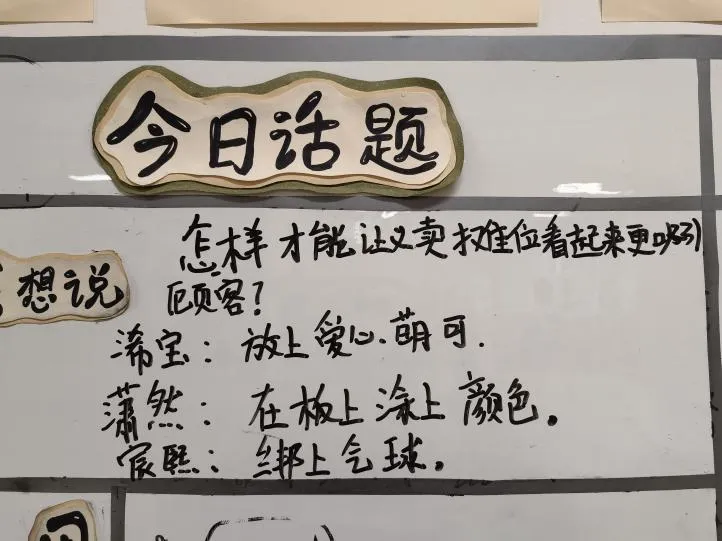 今日话题
怎样才能让义卖摊位看起来更吸引
想说
顾客？
浠宝：放上爱心.萌可.
潇然：在板上涂上颜色。
宸熙：绑上气球。